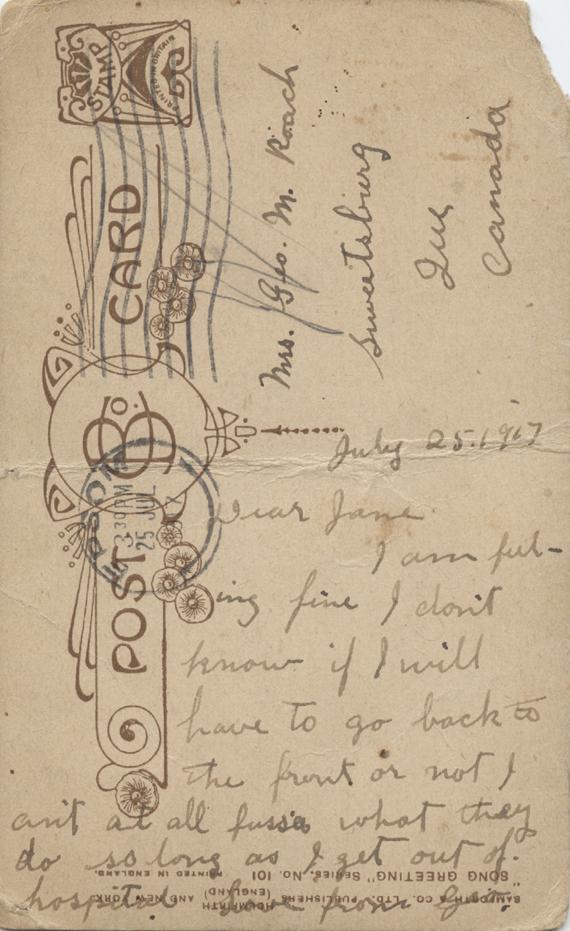 STAMP
PRINTED IN BRITAIN
POST CARD
B. Co.
EPSOM
3 30 PM
25 JUL
17
Mrs. Geo. M. Roach
Sweetsburg
Que
Canada
July 25. 1917
Dear Jane
I am feel-
ing fine I don't
know if I will
have to go back to
the front or not I
ain't at all fussa what they
do so long as I get out of
hospital Love from
BAMFORTH & CO. LTD. PUBLISHERS HOLMFIRTH (ENGLAND) AND NEW YORK
"SONG GREETING" SERIES. NO. 101
PRINTED IN ENGLAND.